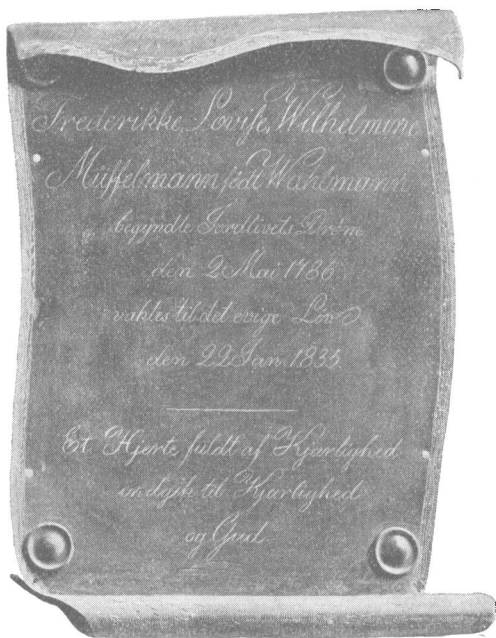 Frederikke, Lovise, Wilhelmine
Müffelmann født Wahlmann
begyndte Jordlivets Drøm
den 2 Mai 1786
vaktes til det evige Liv
den 22 Jan. 1835.
Et Hjerte fuldt af Kjærlighed
indgik til Kjærlighed
og Gud.